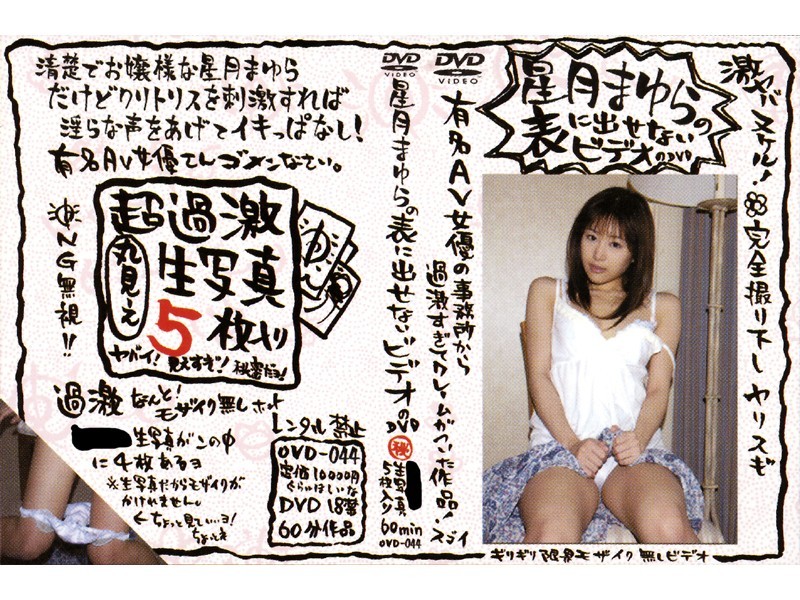 清楚でお嬢様な星月まゆら
だけどクリトリスを刺激すれば
淫らな声をあげてイキっぱなし!
有名AV女優でんゴメンなさい。
超過激
丸見え
生写真
5枚入り
ヤバイ!見えすぎ!秘密だョ!
NG無視!!
過激なんと!モザイク無しホット
生写真がこの中
に4枚あるヨ
※生写真だからモザイクが
かけれません。
←ちょっと見てい…ヨ!
ちょっとネ
レンタル禁止
OVD-044
定価10000円
ぐらいはしいな
DVD 18禁
60分作品
DVD
VIDEO
星月まゆらの表に出せないビデオのDVD
㊙
生写真
5枚入り
60min
OVD-044
DVD
VIDEO
有名AV女優の事務所から
過激すぎてクレームがついた作品!スゴイ
星月まゆらの
表に出せない
ビデオのDVD
激ヤバヌケル!
完全撮り下しヤリスギ
ギリギリ限界モザイク無しビデオ